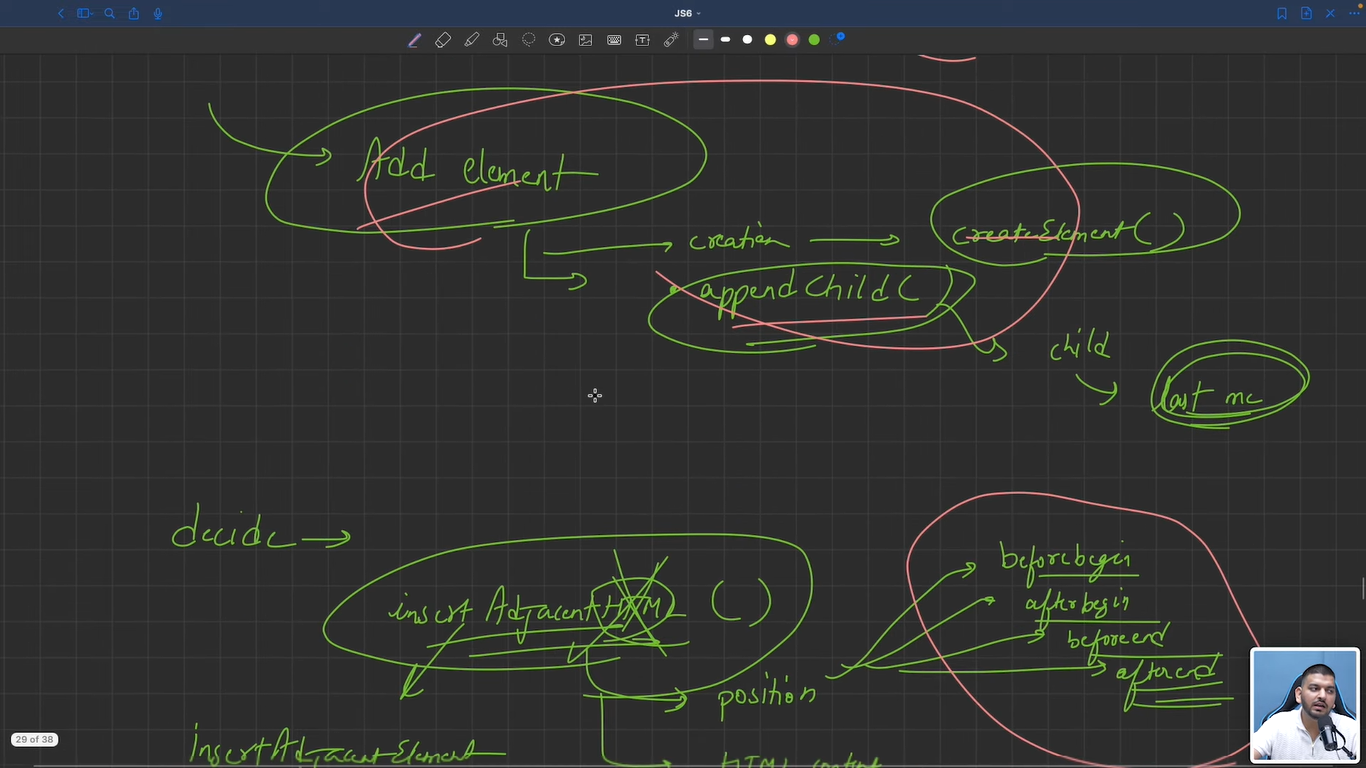 JS6
Add element
creation
createElement()
appendChild()
child
last me
decide
insertAdjacentHTML ()
beforebegin
afterbegin
beforeend
afterend
position
insertAdjacentElement
HTML content
29 of 38